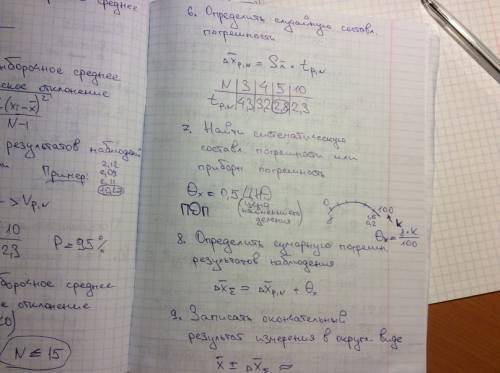 среднее
выборочное среднее
ское отклонение
(xᵢ-x̄)²
N-1
результатов наблюдений
Пример:
2,12
2,09
2,11
> Vp,N
10
2,3
P = 95%
борочное среднее
ое отклонение
N ≤ 15
6. Определить случайную составл.
погрешность
Δx̄p,N = Sx̄ · tp,N
N | 3 | 4 | 5 | 10
tp,N | 4,3 | 3,2 | 2,8 | 2,3
7. Найти систематическую
составл. погрешности или
приборн. погрешность
θx = 0,5 ЦНД
(цена наименьшего деления
ПЭП
0 100
8. Определить сумарную погрешн.
результатов наблюдения
Δx̄Σ = Δx̄p,N + θx
9. Записать окончательный
результат измерения в округл. виде
x̄ ± Δx̄Σ =